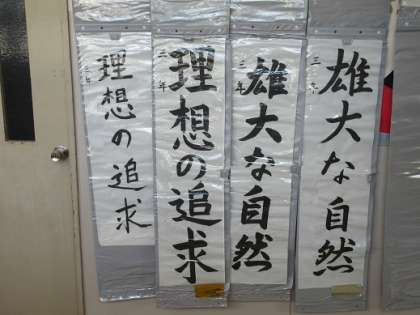 雄大な自然
三年
雄大な自然
三年
理想の追求
三年
理想の追求
三年